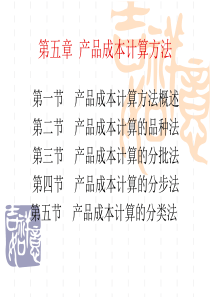 第五章 产品成本计算方法
第一节 产品成本计算方法概述
第二节 产品成本计算的品种法
第三节 产品成本计算的分批法
第四节 产品成本计算的分步法
第五节 产品成本计算的分类法